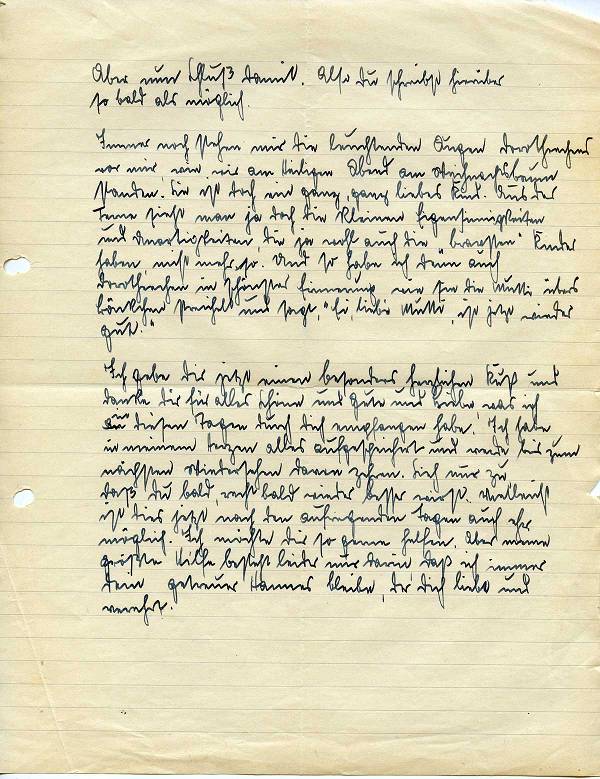 Aber nun Schluß damit. Also Du schreibst hierüber
so bald als möglich.
Immer noch stehen mir die leuchtenden Augen Dorothechens
vor mir, wie wir am Heiligen Abend am Weihnachtsbaum
standen. Sie ist doch ein ganz, ganz liebes Kind. Aus der
Ferne sieht man ja doch die kleinen Eigensinnigkeiten
und Unartigkeiten die ja wohl auch die "bravsten" Kinder
haben, nicht mehr so. Und so habe ich denn auch
Dorothechen in schönster Erinnerung wie sie die Mutti übers
Köpfchen streichelt und sagt, "Ei, liebe Mutti, ist jetzt wieder
gut."
Ich gebe Dir jetzt einen besonders herzlichen Kuß und
danke Dir für alles Schöne und Gute und Liebe, was ich
in diesen Tagen durch Dich empfangen habe. Ich habe
in meinem Herzen alles aufgespeichert und werde bis zum
nächsten Wiedersehen davon zehren. Sieh nur zu
daß Du bald, recht bald wieder besser wirst. Vielleicht
ist dies jetzt nach den aufregenden Tagen auch eher
möglich. Ich möchte Dir so gerne helfen. Aber meine
größte Hilfe besteht leider nur darin, daß ich immer
Dein getreuer Hannes bleibe, der Dich liebt und
verehrt.